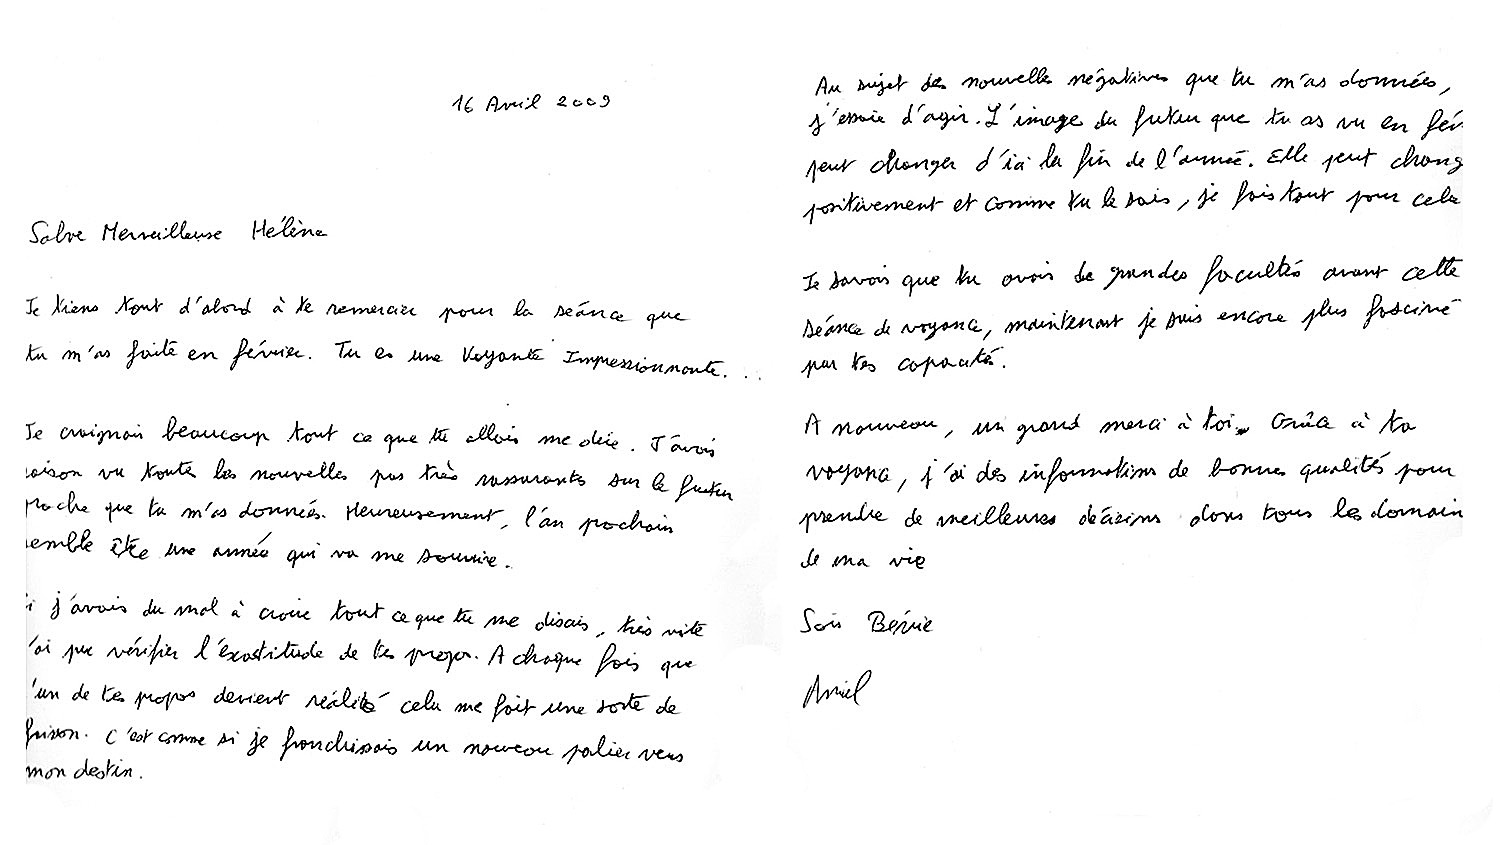 16 Avril 2009
Salve Merveilleuse Hélène
Je tiens tout d'abord à te remercier pour la séance que
tu m'as faite en février. Tu es une Voyante Impressionnante...
Je craignais beaucoup tout ce que tu allais me dire. J'avais
aison vu toute les nouvelles pas très rassurantes sur le futur
roche que tu m'as données. Heureusement, l'an prochain
emble être une année qui va me sourire.
i j'avais du mal à croire tout ce que tu me disais, très vite
'ai pu vérifier l'éxactitude de tes propos. A chaque fois que
'un de tes propos devient réalité cela me fait une sorte de
frisson. C'est comme si je franchissais un nouveau palier vers
mon destin.
Au sujet des nouvelles négatives que tu m'as données,
j'essaie d'agir. L'image du futur que tu as vu en fév
peut changer d'ici la fin de l'année. Elle peut chang
positivement et comme tu le sais, je fais tout pour cela
Je savais que tu avais de grandes facultés avant cette
séance de voyance, maintenant je suis encore plus fasciné
par tes capacités.
A nouveau, un grand merci à toi. Grâce à ta
voyance, j'ai des informations de bonnes qualités pour
prendre de meilleures décisions dans tous les domain
de ma vie
Sois Bénie